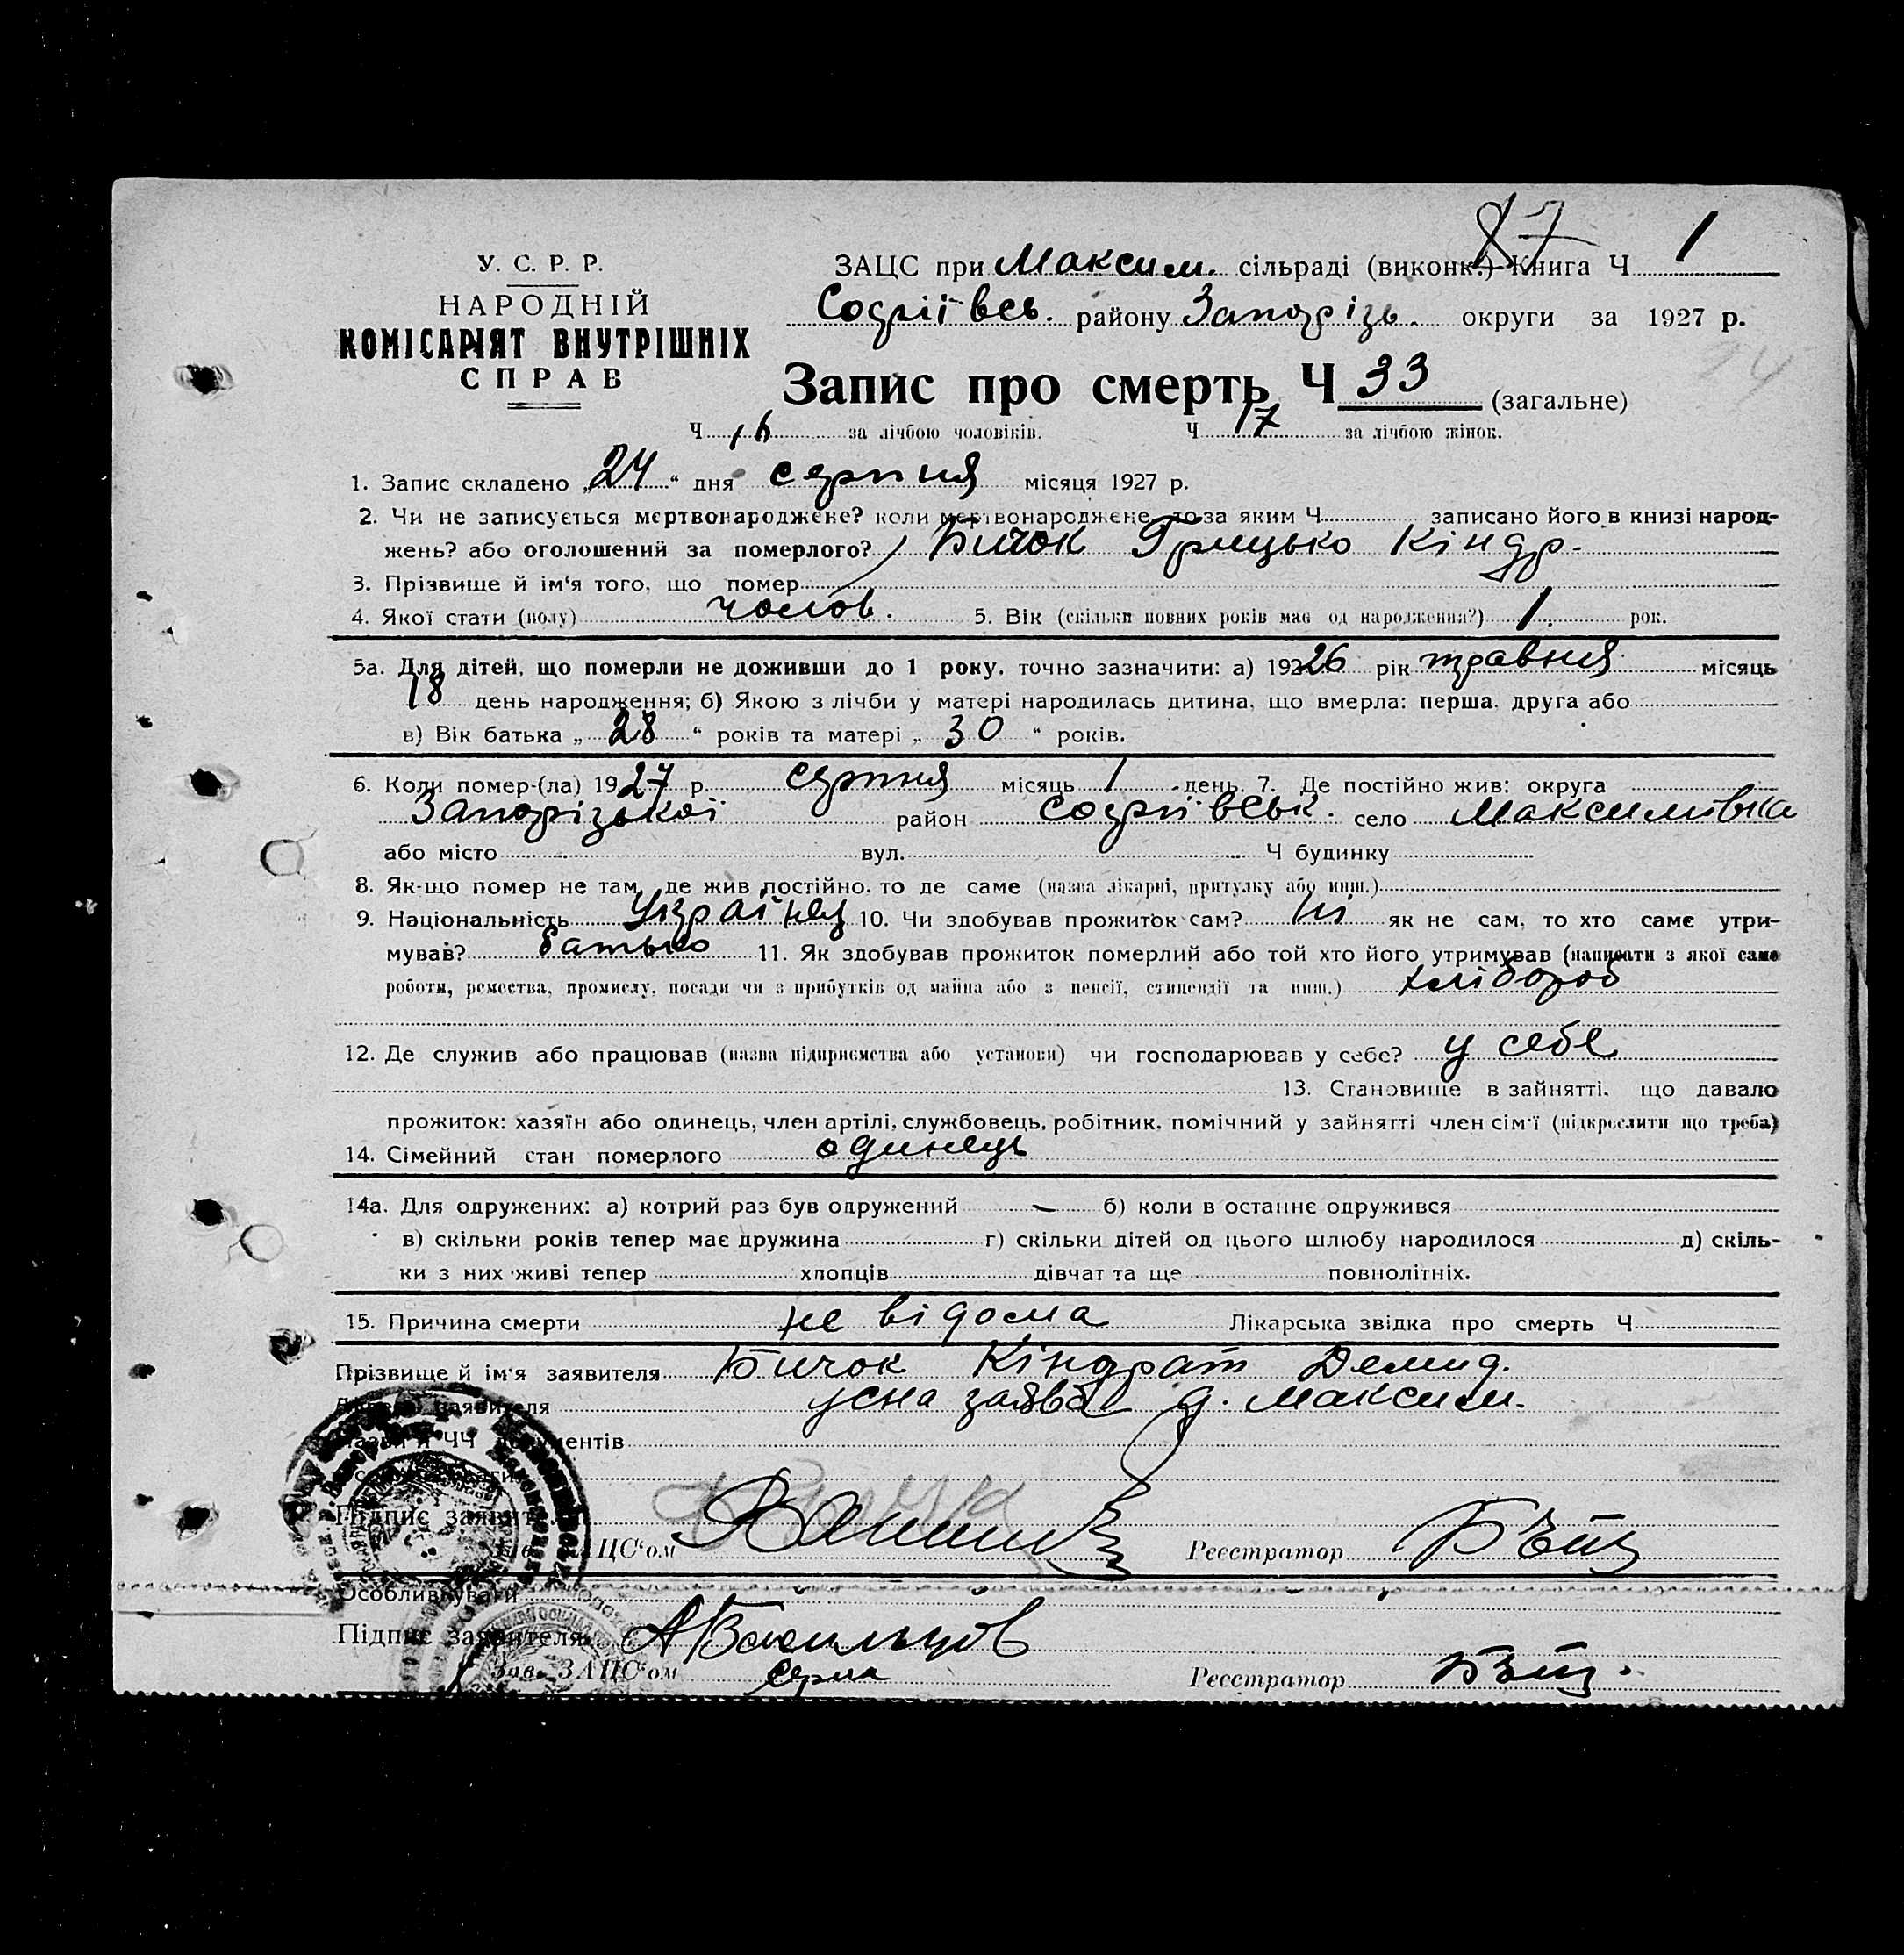 87
У. С. Р. Р.
НАРОДНІЙ
КОМІСАРІЯТ ВНУТРІШНІХ
СПРАВ
ЗАЦС при Максим. сільраді (виконк.) Книга Ч 1
Софіївсь. району Запоріь. округи за 1927 р.
14
Запис про смерть Ч 33 (загальне)
Ч 16 за лічбою чоловіків. Ч 17 за лічбою жінок.
1. Запис складено „24“ дня серпня місяця 1927 р.
2. Чи не записується мертвонароджене? коли мертвонароджене, то за яким Ч записано його в книзі народ-
жень? або оголошений за померлого? Бичок Грицько Кіндр.
3. Прізвище й ім‘я того, що помер
4. Якої стати (полу) чолов. 5. Вік (скільки повних років має од народження?) 1. рок.
5а. Для дітей, що померли не доживши до 1 року, точно зазначити: а) 19226 рік травня місяць
18 день народження; б) Якою з лічби у матері народилась дитина, що вмерла: перша, друга або
в) Вік батька „ 28 “ років та матері „ 30 “ років.
6. Коли помер-(ла) 1927 р. серпня місяць 1 день. 7. Де постійно жив: округа
Запорізької район Софіївськ. село Максимівка
або місто вул. Ч будинку
8. Як-що помер не там, де жив постійно, то де саме (назва лікарні, притулку або инш.)
9. Національність Українец 10. Чи здобував прожиток сам? Ні як не сам, то хто саме утри-
мував? батько 11. Як здобував прожиток померлий або той хто його утримував (написати з якої саме
роботи, ремества, промислу, посади чи з прибутків од майна або з пенсії, стипендії та инш.) хлібороб
12. Де служив або працював (назва підприємства або установи) чи господарював у себе? у себе
13. Становище в зайнятті, що давало
прожиток: хазяїн або одинець, член артілі, службовець, робітник, помічний у зайнятті член сім‘ї (підкреслити що треба)
14. Сімейний стан померлого одинець
14а. Для одружених: а) котрий раз був одружений — б) коли в останнє одружився
в) скільки років тепер має дружина г) скільки дітей од цього шлюбу народилося д) скіль-
ки з них живі тепер хлопців дівчат та ще повнолітніх.
15. Причина смерти не відома Лікарська звідка про смерть Ч
Прізвище й ім‘я заявителя Бичок Кіндрат Демид.
заявителя усна заява д. Максим.
Назви й ЧЧ документів
Підпис заявителя
ЦС‘ом Реєстратор
Особливі уваги
Підпис заявителя
Зав. ЗАЦС‘ом Реєстратор